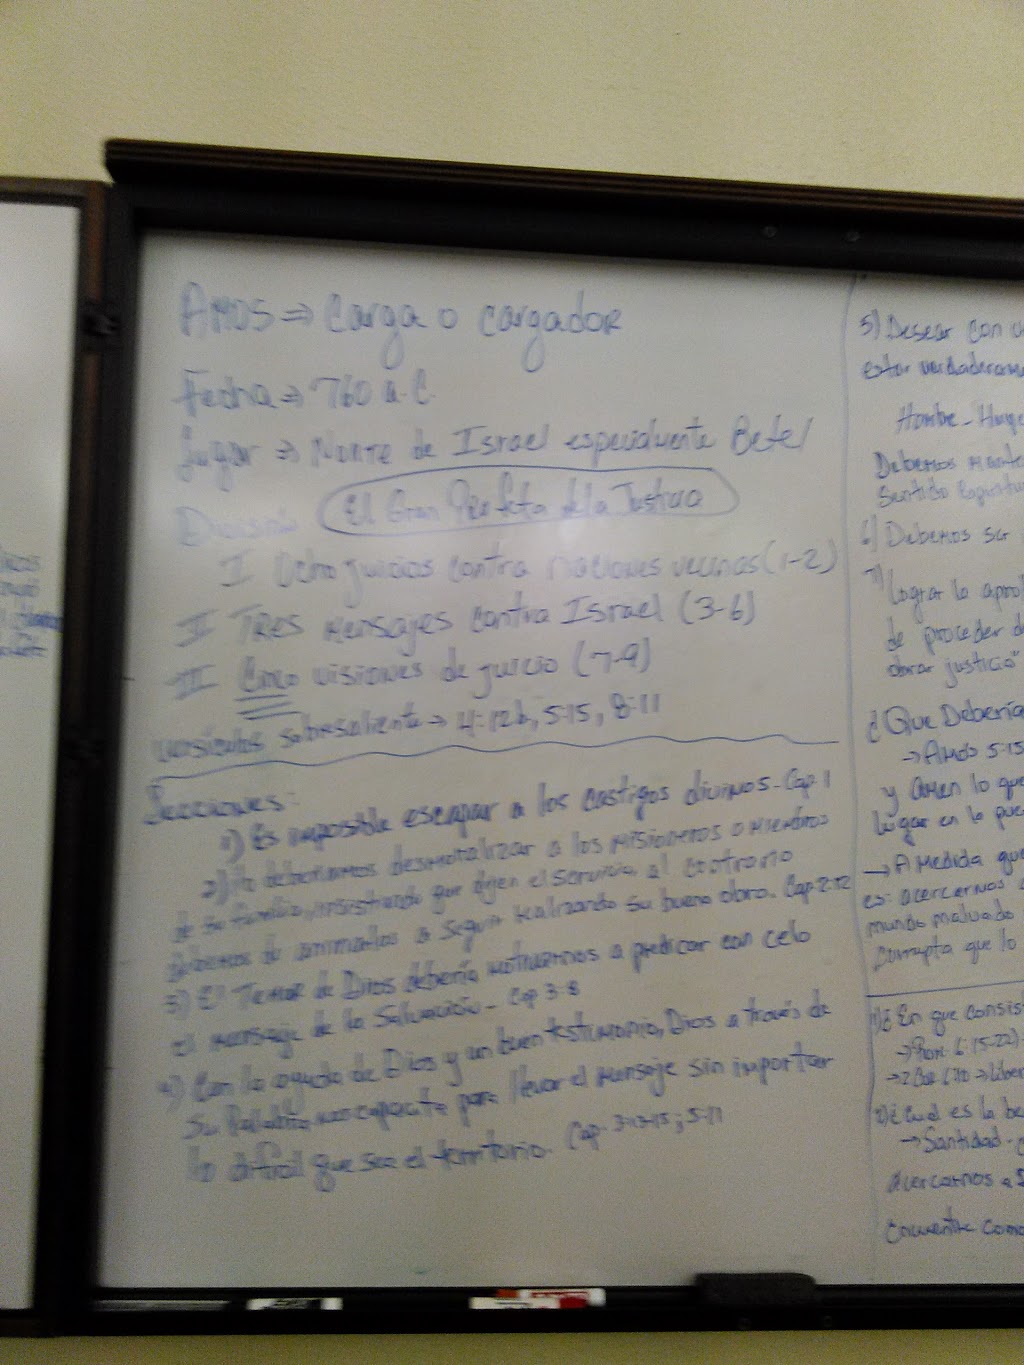 Amos ⇒ Carga o cargador
Fecha ⇒ 760 a.C.
Lugar ⇒ Norte de Israel especialmente Betel
El Gran Profeta de la Justicia
I Ocho juicios contra naciones vecinas (1-2)
II Tres mensajes contra Israel (3-6)
III Cinco visiones de juicio (7-9)
versículos sobresaliente → 4:12b, 5:15, 8:11
1) Es imposible escapar a los castigos divinos - Cap 1
2) No deberíamos desmoralizar a los misioneros o miembros
de su familia, insistiendo que dejen el servicio, al contrario
debemos de animarlos a seguir realizando su buena obra. Cap 2:12
3) El Temor de Dios debería motivarnos a predicar con celo
el mensaje de la Salvación - Cap 3-8
4) Con la ayuda de Dios y un buen testimonio, Dios a través de
Su Palabra nos capacita para llevar el mensaje sin importar
lo difícil que sea el territorio. Cap. 3:13-15; 5:11
5) Desear con
estar
Hombre -
Debemos
Sentido
6) Debemos ser
7) Lograr la
de proceder
obrar justicia"
¿Que Debería
→ Amós 5:15
y Amen lo que
lugar en lo
→ A medida que
es: acercarnos
mundo malvado
corrupta que lo
1) ¿En que
→ Rom. 6:15-22)
2) ¿Cual es la
→ Santidad -
acercarnos a
Encuentre como